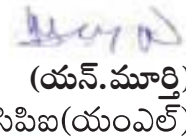 (యన్.మూర్తి)
సిపిఐ(యంఎల్)